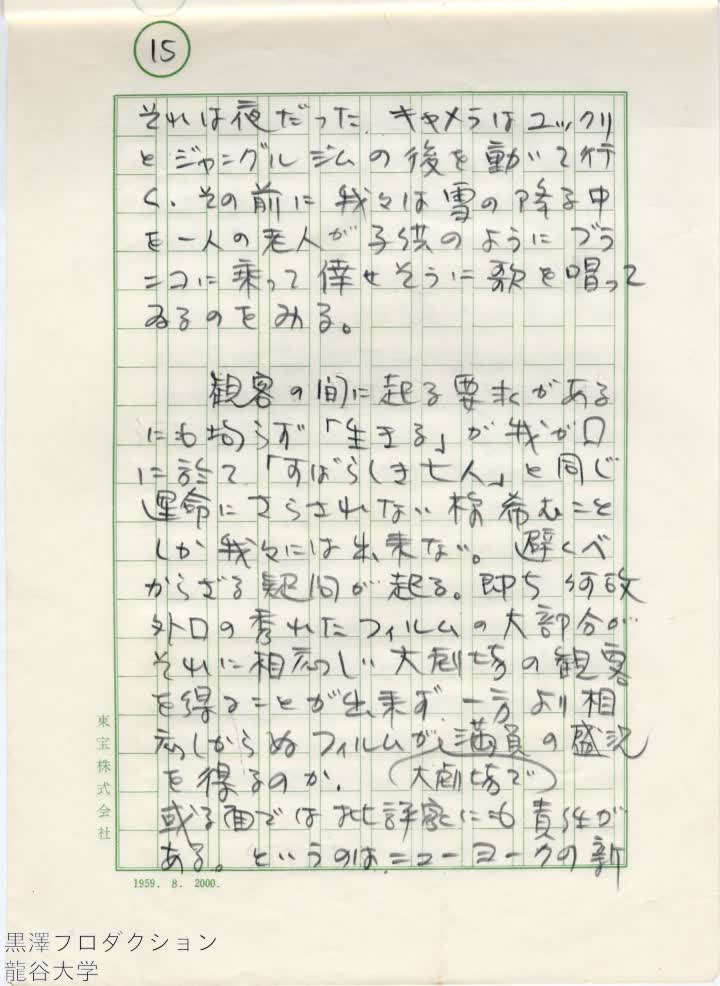 15
それは夜だった、キャメラはユックリ
とジャングルジムの後を動いて行
く、その前に我々は雪の降る中
を一人の老人が子供のようにブラ
ンコに乗って倖せそうに歌を唱って
ゐるのをみる。
観客の間に起る要求がある
にも拘らず「生きる」が我が口
に於て「すばらしき七人」と同じ
運命にさらされない様希むこと
しか我々には出来ない。避くべ
からざる疑問が起る。即ち何故
外口の秀れたフィルムの大部分が
それに相応しい大劇場の観客
を得ることが出来ず、一方より相
応しからぬフィルムが満員の盛況
を得るのか、(大劇場で)
或る面では批評家にも責任が
ある。というのは、ニューヨークの新
東宝株式会社
1959. 8. 2000.
黒澤プロダクション
龍谷大学